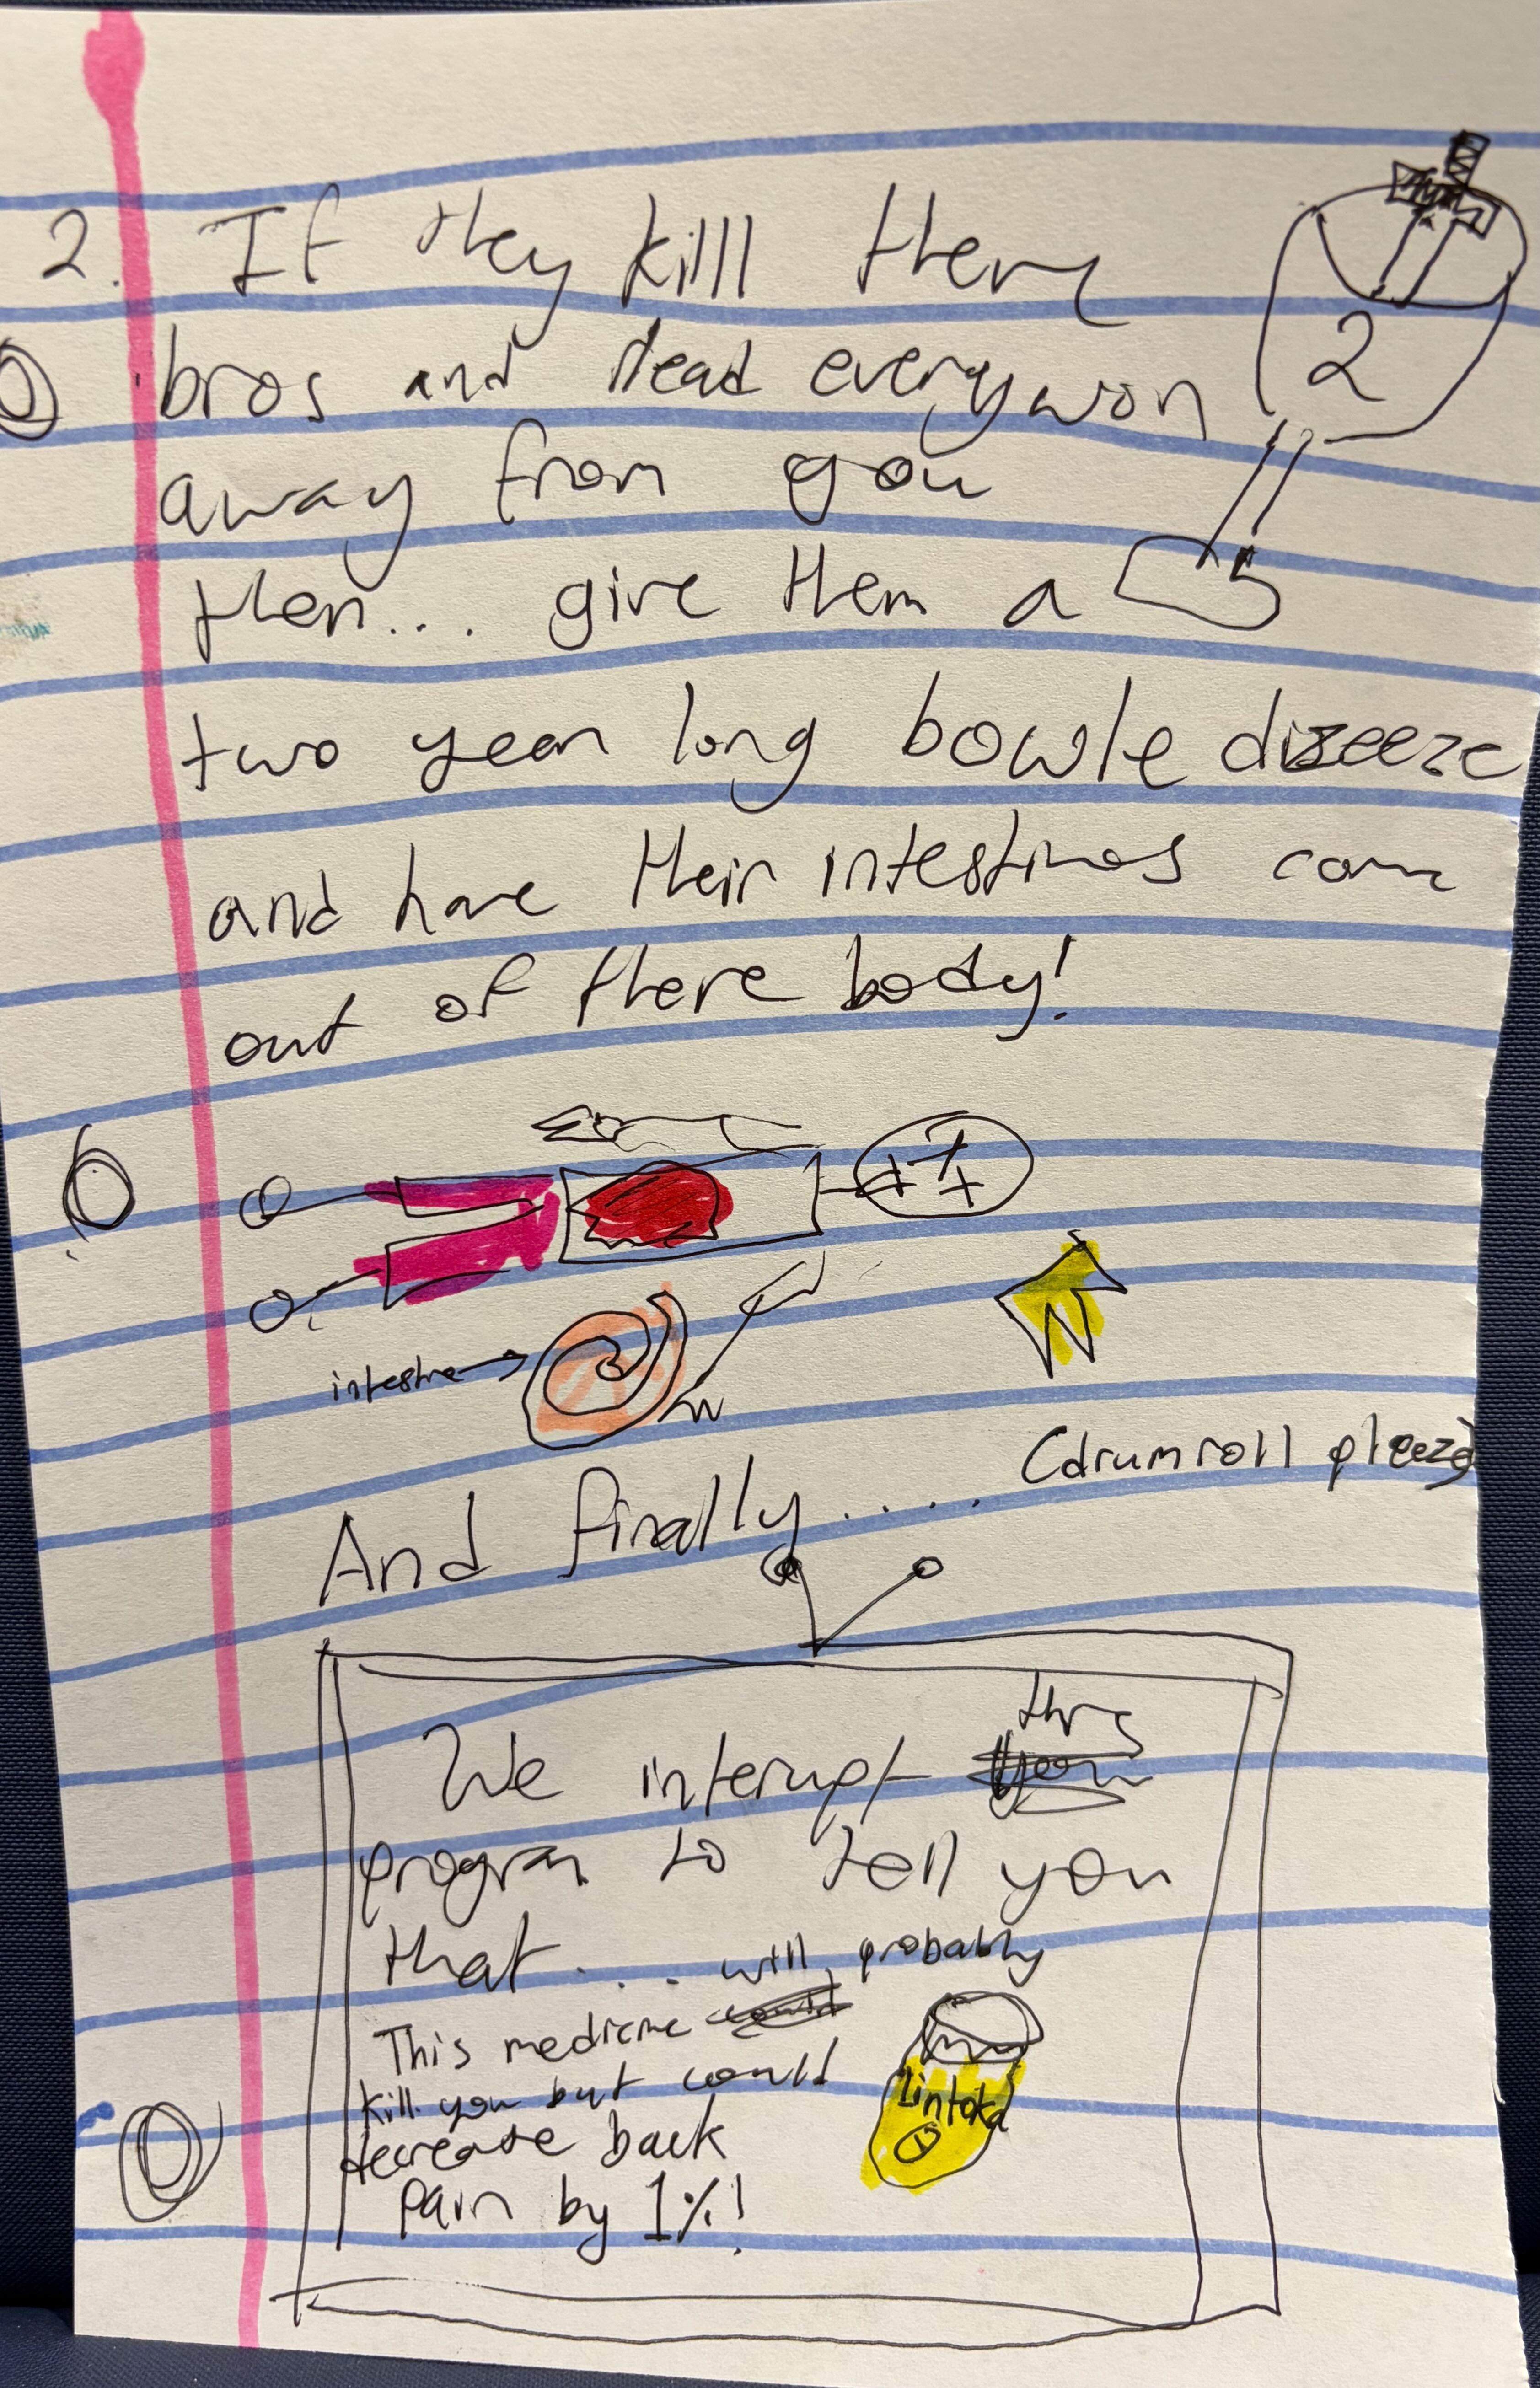 2. If they kill there
2
bros and lead everywon
away from you
then... give them a
two year long bowle dizeeze
and have their intestines come
out of there body!
intestine
And finally..... (drumroll pleeze)
We interupt this
program to tell you
that.... will probably
This medicine
kill you but could
decrease back
pain by 1%!
Lintoka